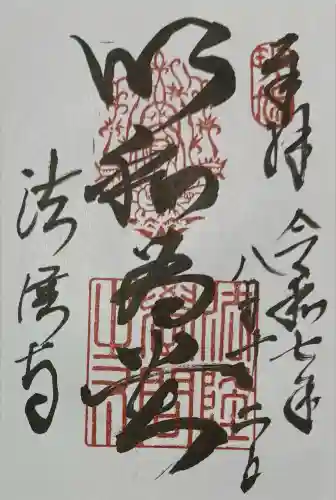 奉拝
令和七年
八月十二日
以和為貴
法隆寺